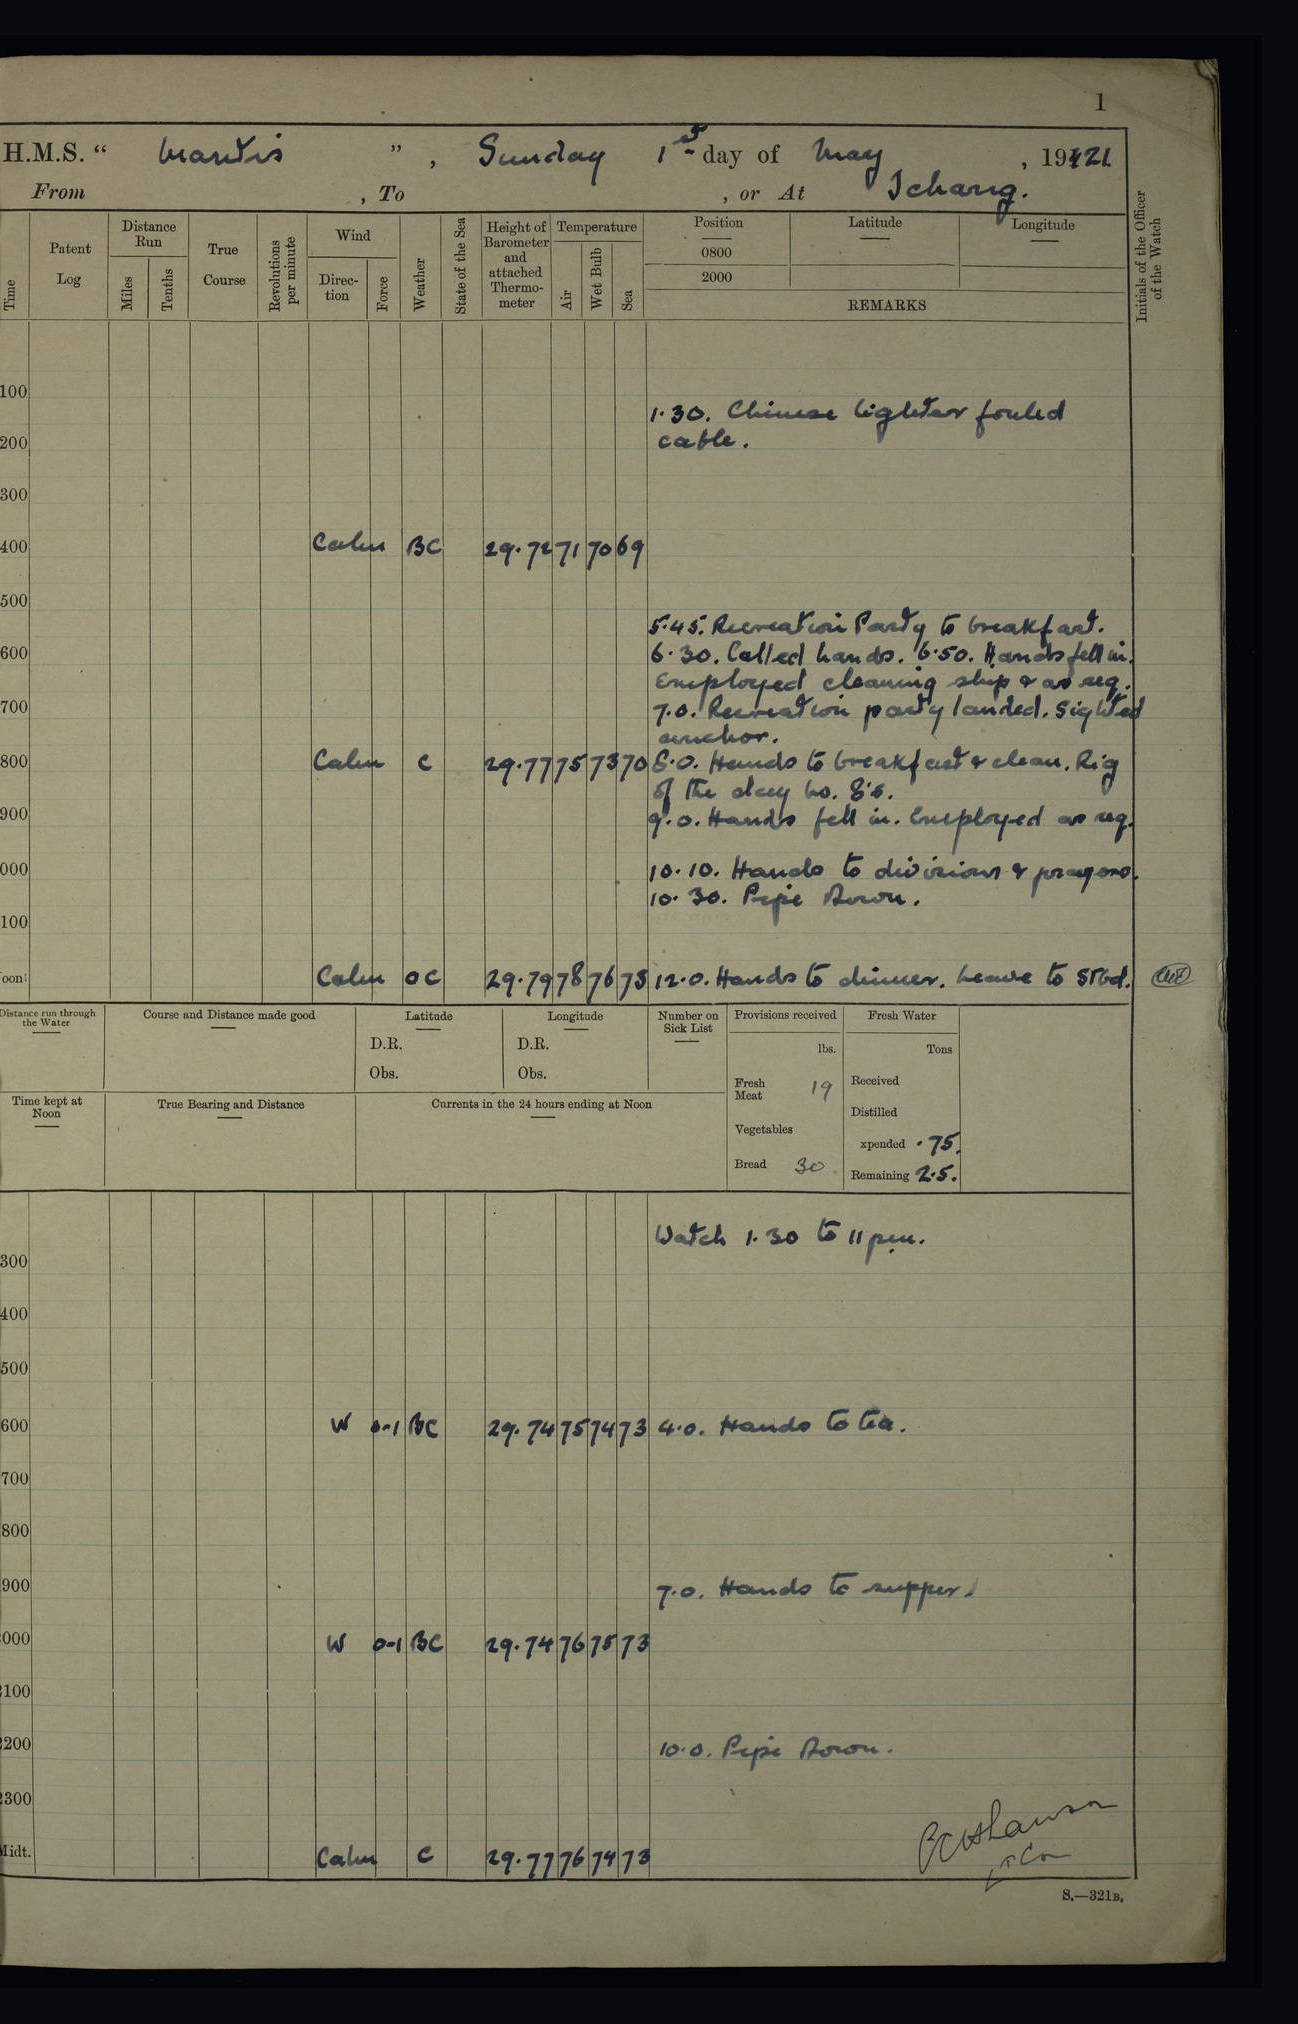 1
H.M.S. “ Mantis ” , Sunday 1st day of May , 1921
From , To , or At Ichang.
Time Patent Log Distance Run Miles Tenths True Course Revolutions per minute Wind Direc- tion Force Weather State of the Sea Height of Barometer and attached Thermo- meter Temperature Air Wet Bulb Sea Position 0800 2000 Latitude Longitude REMARKS Initials of the Officer of the Watch
100
1.30. Chinese lighter fouled
200 cable.
300
400 Calm BC 29.72 71 70 69
500
5.45. Recreation Party to breakfast.
600 6.30. Called hands. 6.50. Hands fell in.
Employed cleaning ship & as req.
700 7.0. Recreation party landed. Sighted
anchor.
800 Calm C 29.77 75 73 70 8.0. Hands to breakfast & clean. Rig
of the day No. 8's.
900 9.0. Hands fell in. Employed as req.
000 10.10. Hands to divisions & prayers.
10.30. Pipe Down.
100
oon Calm OC 29.79 78 76 73 12.0. Hands to dinner. Leave to Stbd.
Distance run through the Water Course and Distance made good Latitude D.R. Obs. Longitude D.R. Obs. Number on Sick List Provisions received lbs. Fresh Water Tons
Fresh Meat 19 Received
Time kept at Noon True Bearing and Distance Currents in the 24 hours ending at Noon Vegetables Distilled
xpended .75.
Bread 30 Remaining 2.5.
Watch 1.30 to 11 pm.
300
400
500
600 W 0-1 BC 29.74 75 74 73 4.0. Hands to tea.
700
800
900 7.0. Hands to supper.
000 W 0-1 BC 29.74 76 75 73
100
200 10.0. Pipe Down.
300
Midt. Calm C 29.77 76 74 73
S.—321B.